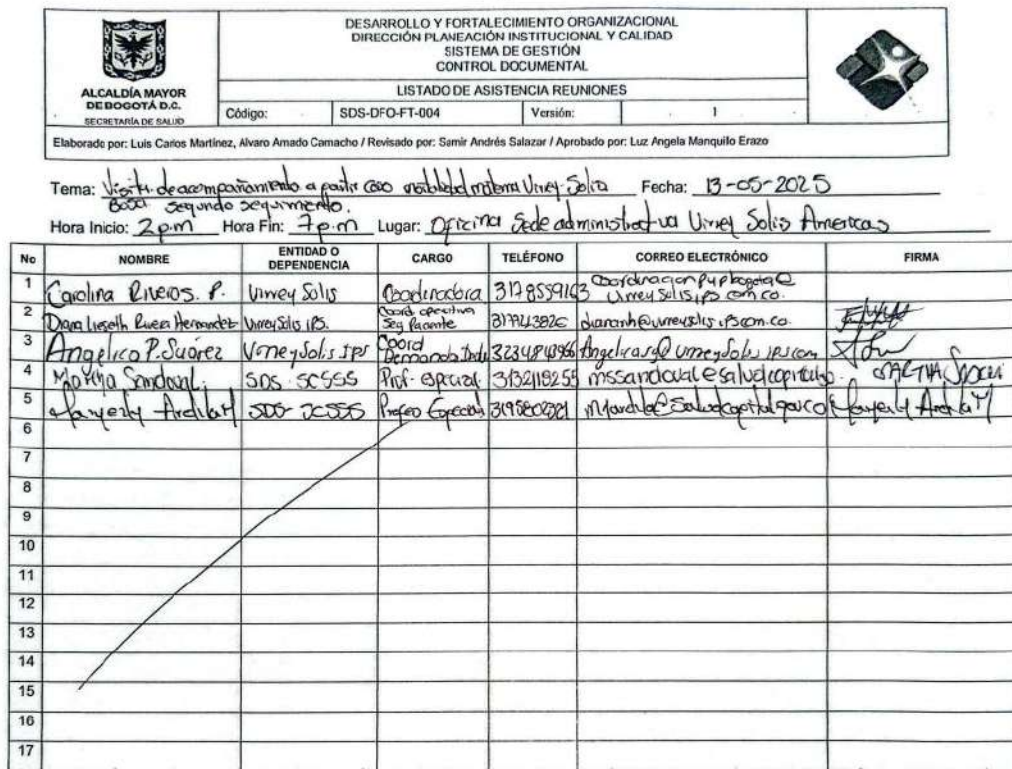 ALCALDÍA MAYOR
DE BOGOTÁ D.C.
SECRETARÍA DE SALUD
DESARROLLO Y FORTALECIMIENTO ORGANIZACIONAL
DIRECCIÓN PLANEACIÓN INSTITUCIONAL Y CALIDAD
SISTEMA DE GESTIÓN
CONTROL DOCUMENTAL
LISTADO DE ASISTENCIA REUNIONES
Código: SDS-DFO-FT-004 Versión: 1
Elaborado por: Luis Carlos Martínez, Alvaro Amado Camacho / Revisado por: Samir Andrés Salazar / Aprobado por: Luz Angela Manquillo Erazo
Tema: Visita de acompañamiento a partir caso mortalidad materna Virrey Solis Fecha: 13-05-2025
Bosa segundo seguimiento.
Hora Inicio: 2p.m Hora Fin: 7p.m Lugar: Oficina Sede administrativa Virrey Solis Americas
No NOMBRE ENTIDAD O DEPENDENCIA CARGO TELÉFONO CORREO ELECTRÓNICO FIRMA
1 Carolina Riveros. P. Virrey Solis Coordinadora Coordinacionpypbogota@virreysolisips.com.co.
2 Diana Liseth Rivera Hernandez Virrey Solis IPS. Coord operativa Seg Paciente diananh@virreysolisips.com.co.
3 Angélica P. Suárez Virrey Solis IPS Coord Demanda
4 Martha Sandoval. SDS-SCSSS Prof. especial. 3132119255
5 Mayerly Ardila M SDS-SCSSS Profeo Especial Mayerly Ardila M
6
7
8
9
10
11
12
13
14
15
16
17